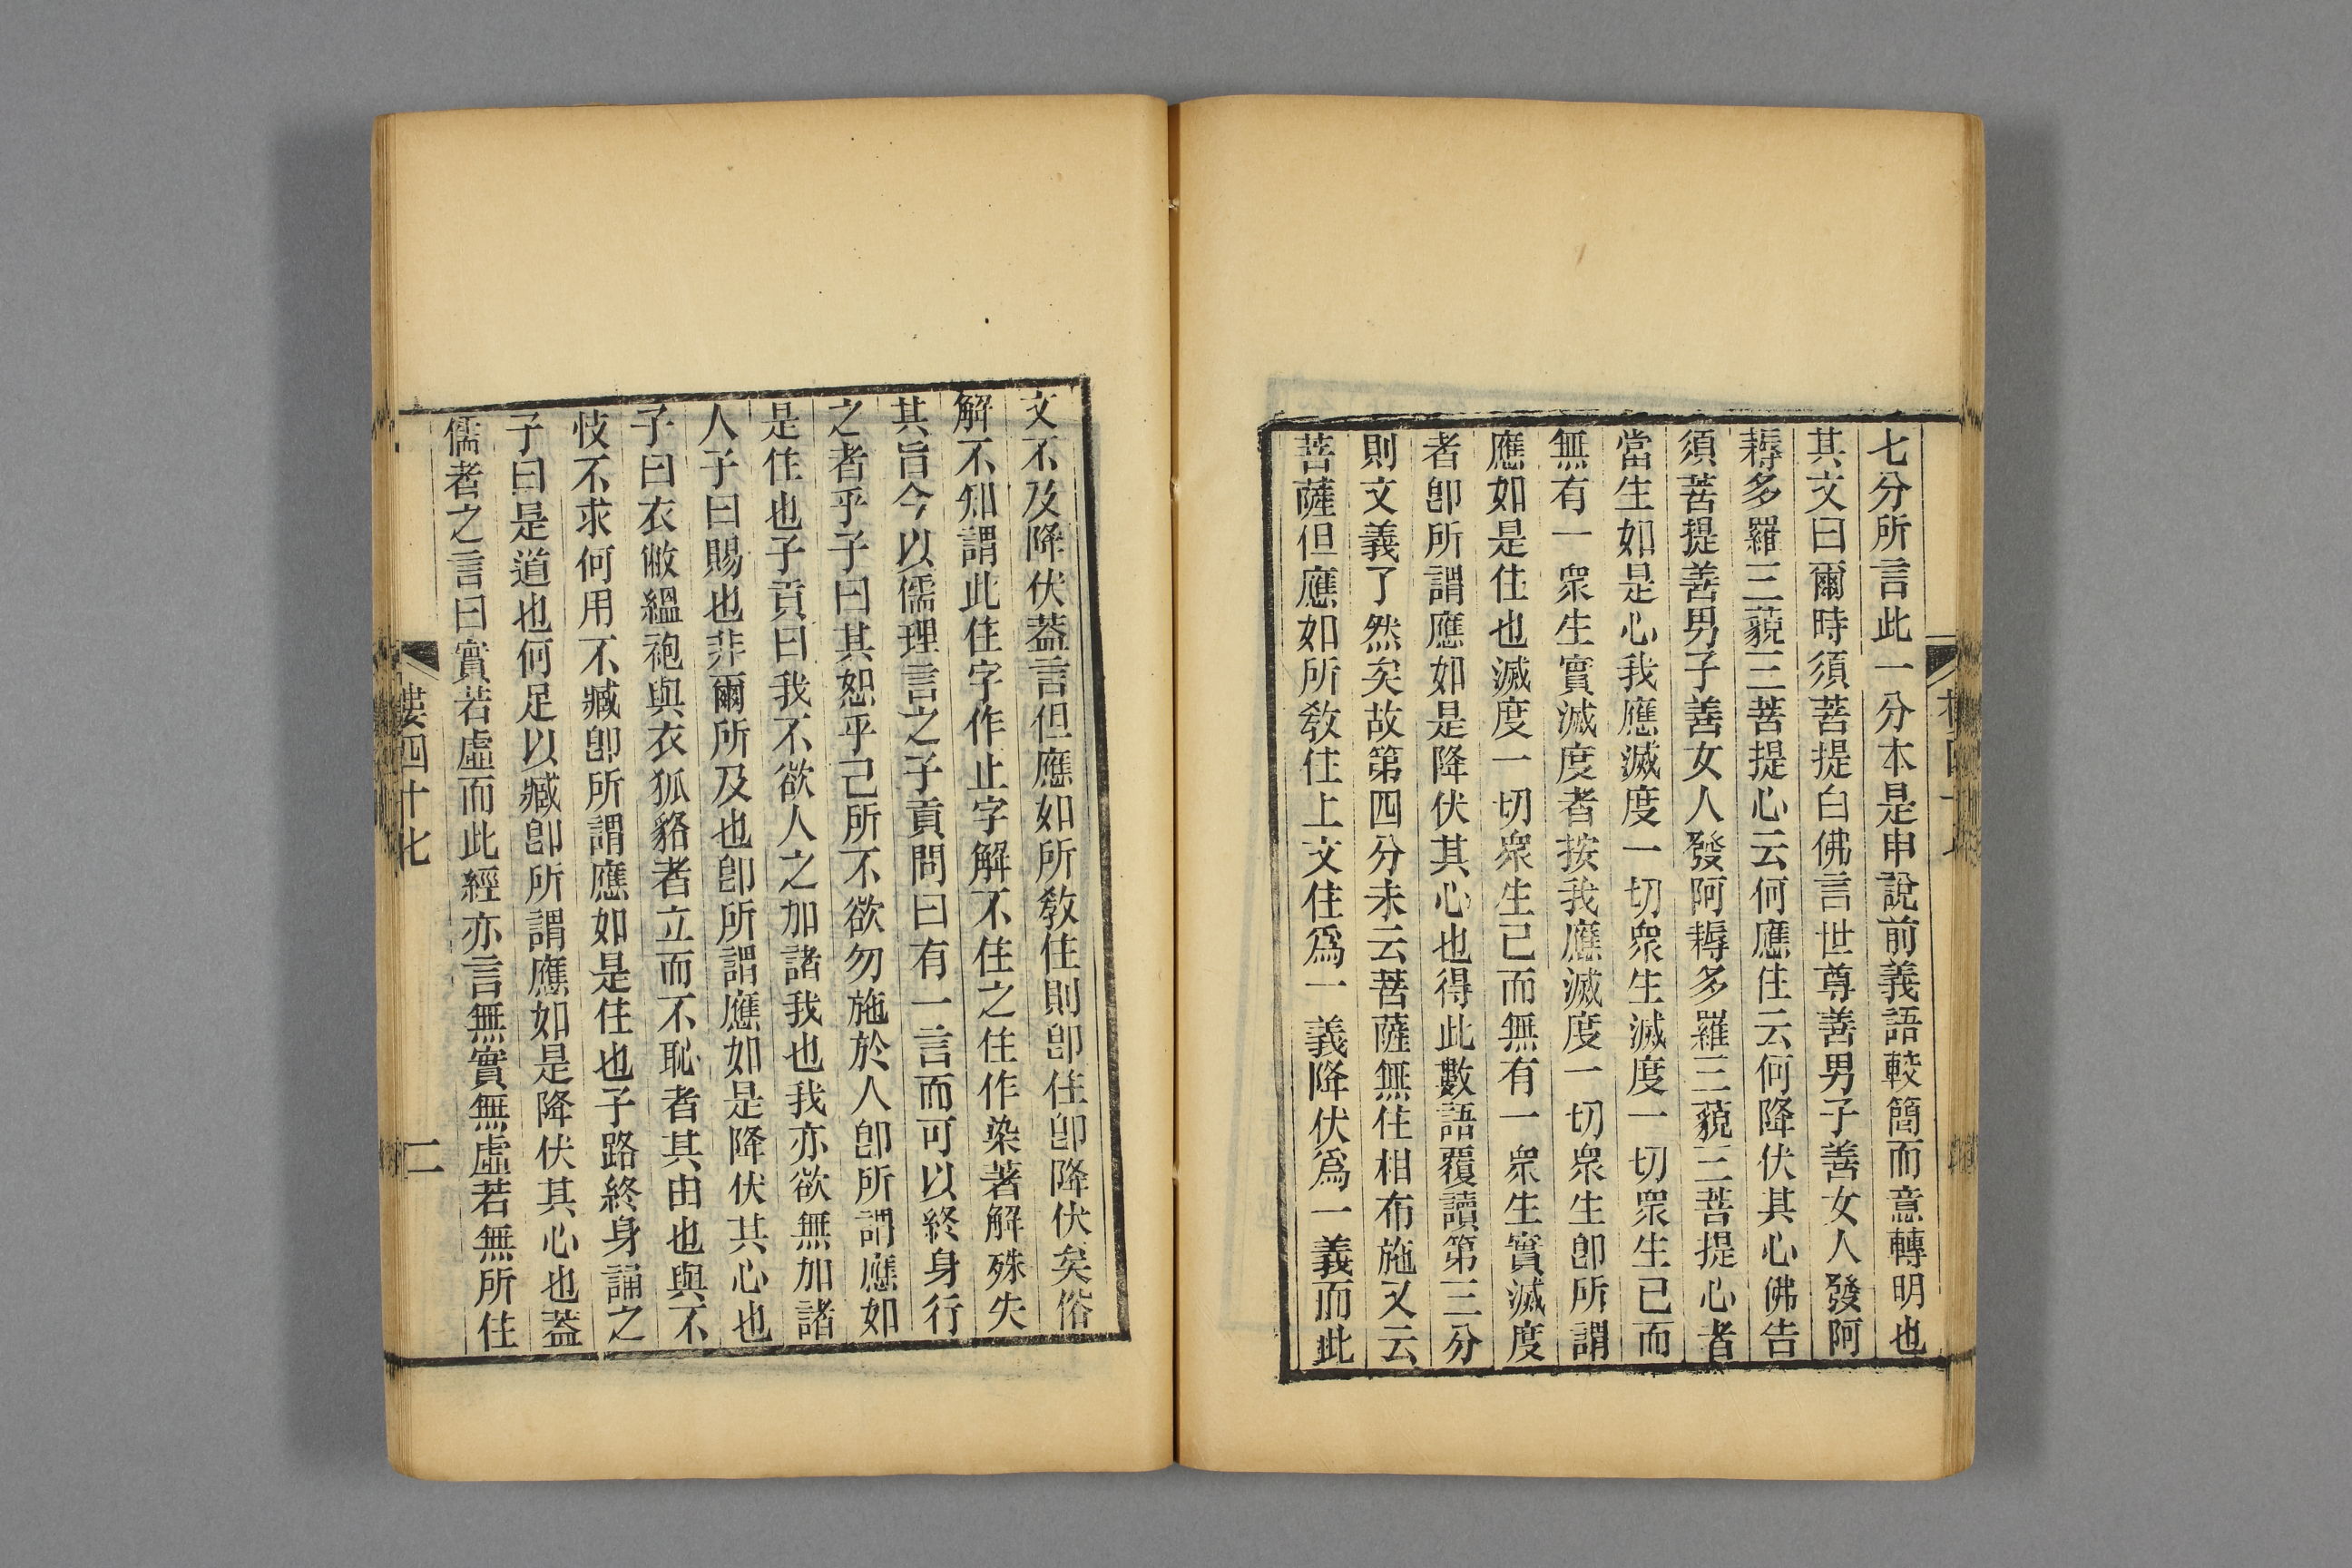 七分所言此一分本是申說前義語較簡而意轉明也
其文曰爾時須菩提白佛言世尊善男子善女人發阿
耨多羅三藐三菩提心云何應住云何降伏其心佛告
須菩提善男子善女人發阿耨多羅三藐三菩提心者
當生如是心我應滅度一切衆生滅度一切衆生已而
無有一衆生實滅度者按我應滅度一切衆生卽所謂
應如是住也滅度一切衆生已而無有一衆生實滅度
者卽所謂應如是降伏其心也得此數語覆讀第三分
則文義了然矣故第四分末云菩薩無住相布施又云
菩薩但應如所敎住上文住爲一義降伏爲一義而此
文不及降伏葢言但應如所敎住則卽住卽降伏矣俗
解不知謂此住字作止字解不住之住作染著解殊失
其旨今以儒理言之子貢問曰有一言而可以終身行
之者乎子曰其恕乎己所不欲勿施於人卽所謂應如
是住也子貢曰我不欲人之加諸我也我亦欲無加諸
人子曰賜也非爾所及也卽所謂應如是降伏其心也
子曰衣敝縕袍與衣狐貉者立而不恥者其由也與不
忮不求何用不臧卽所謂應如是住也子路終身誦之
子曰是道也何足以臧卽所謂應如是降伏其心也葢
儒者之言曰實若虛而此經亦言無實無虛若無所住
婁四十七
二